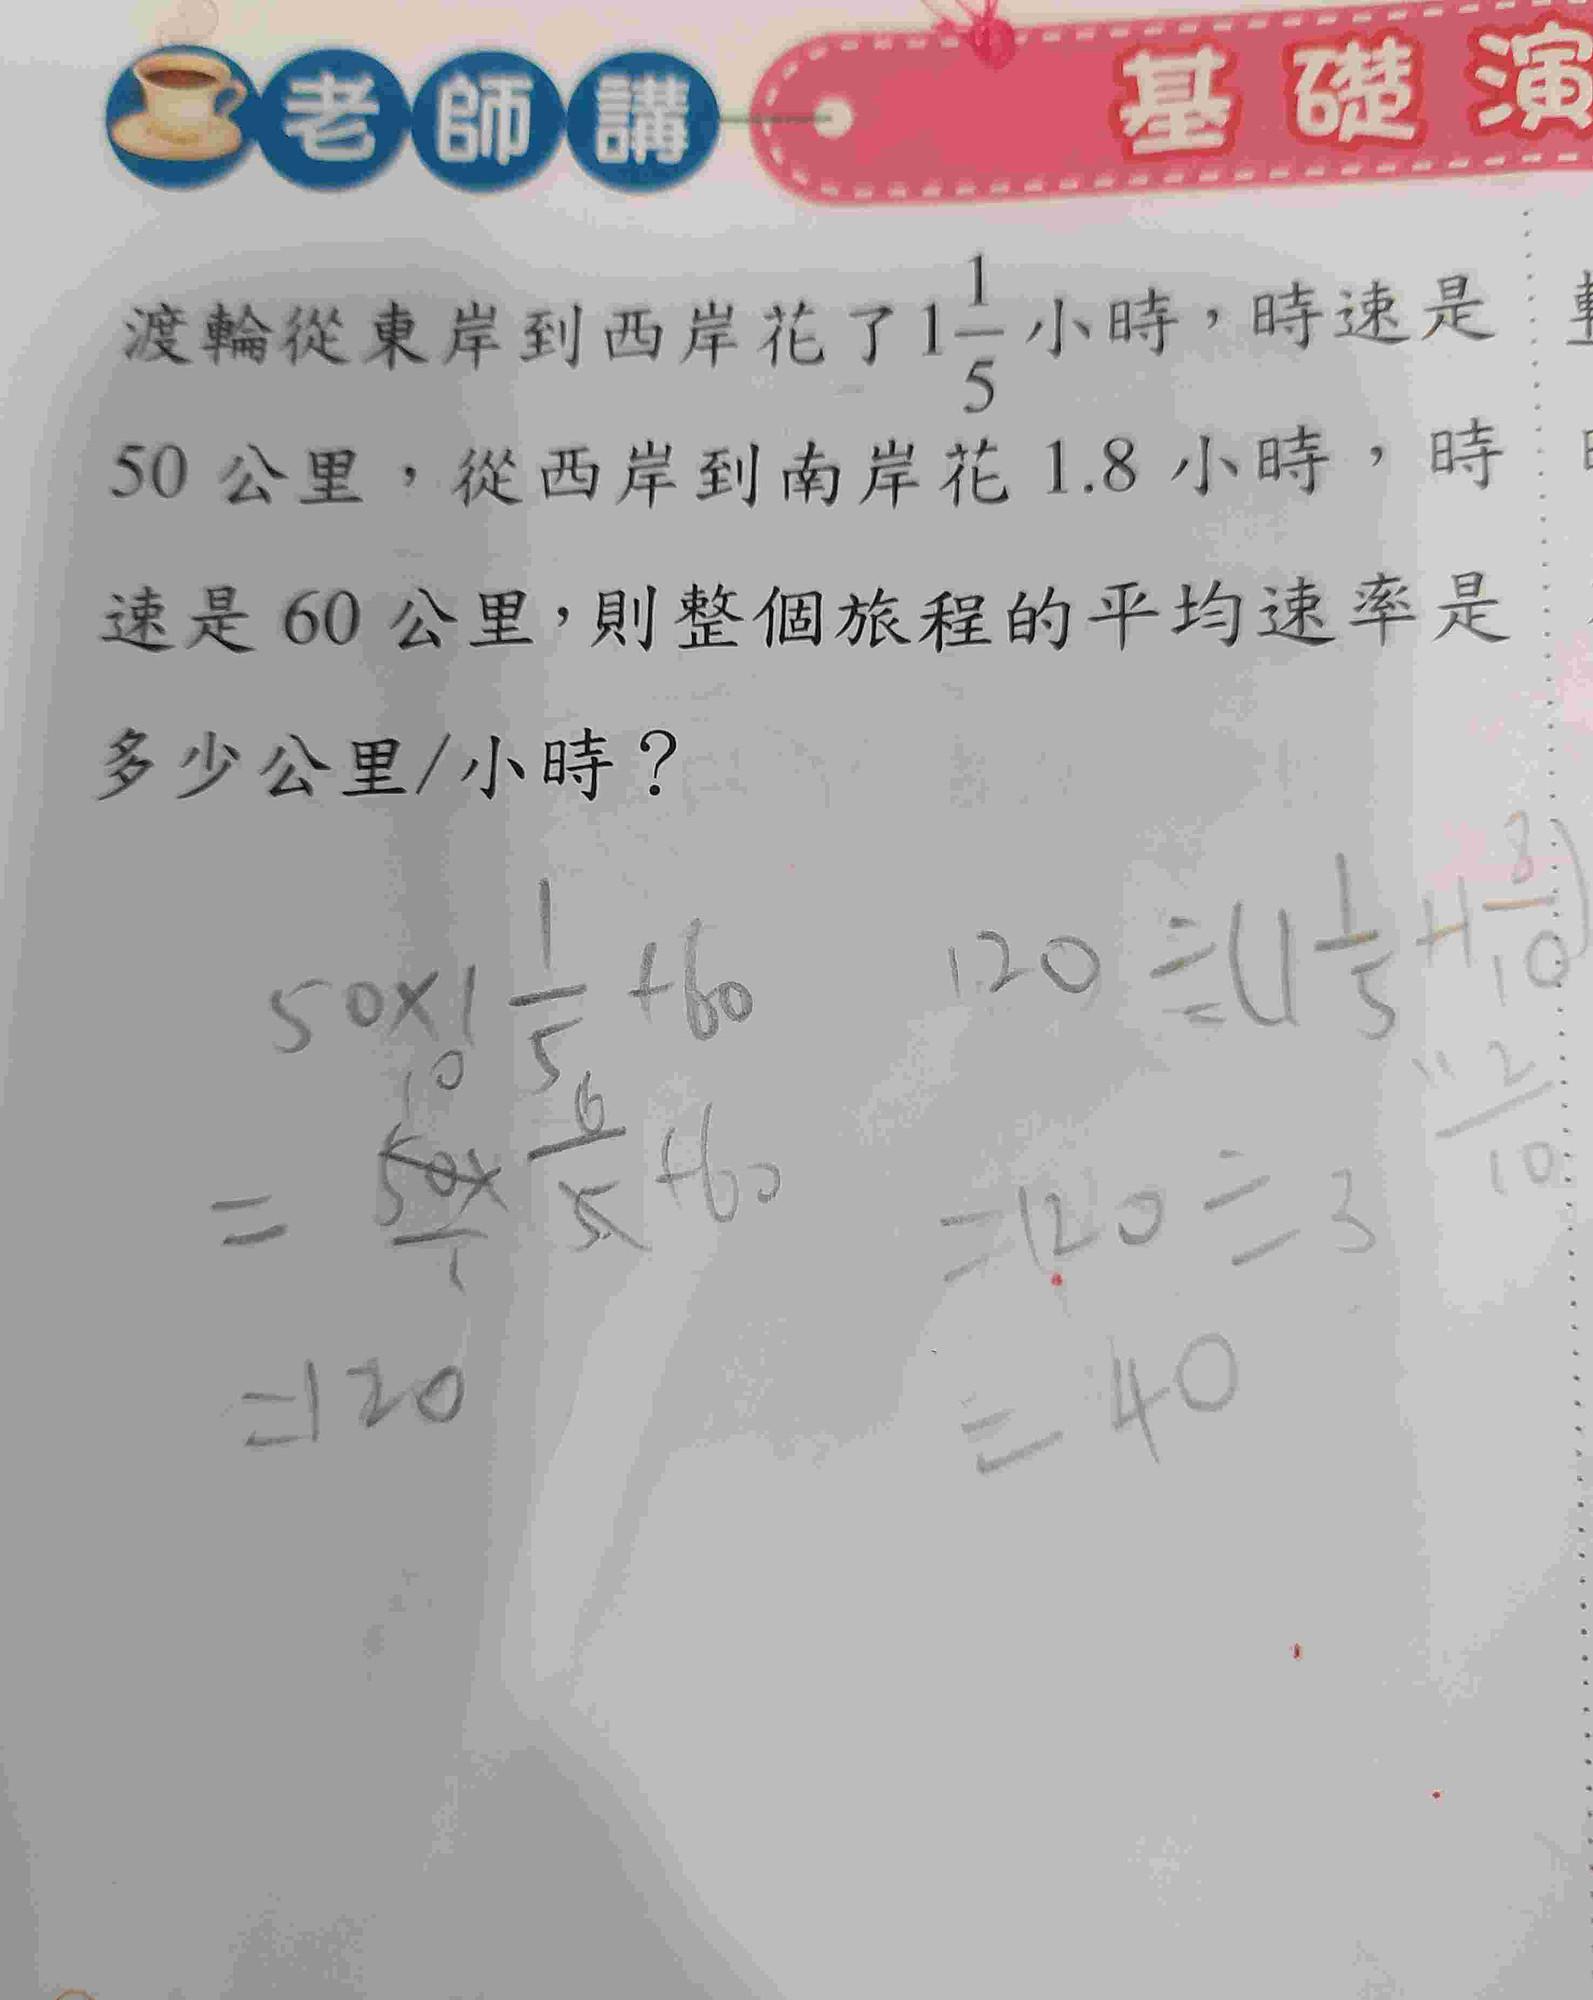 老師講
基礎演
渡輪從東岸到西岸花了1 1/5 小時，時速是
50 公里，從西岸到南岸花 1.8 小時，時
速是 60 公里，則整個旅程的平均速率是
多少公里/小時？
50×1 1/5 +60
10 6
= 50×/1 5 +60
=120
120÷(1 1/5 +1 8/10)
" 2/10
=120÷3
=40